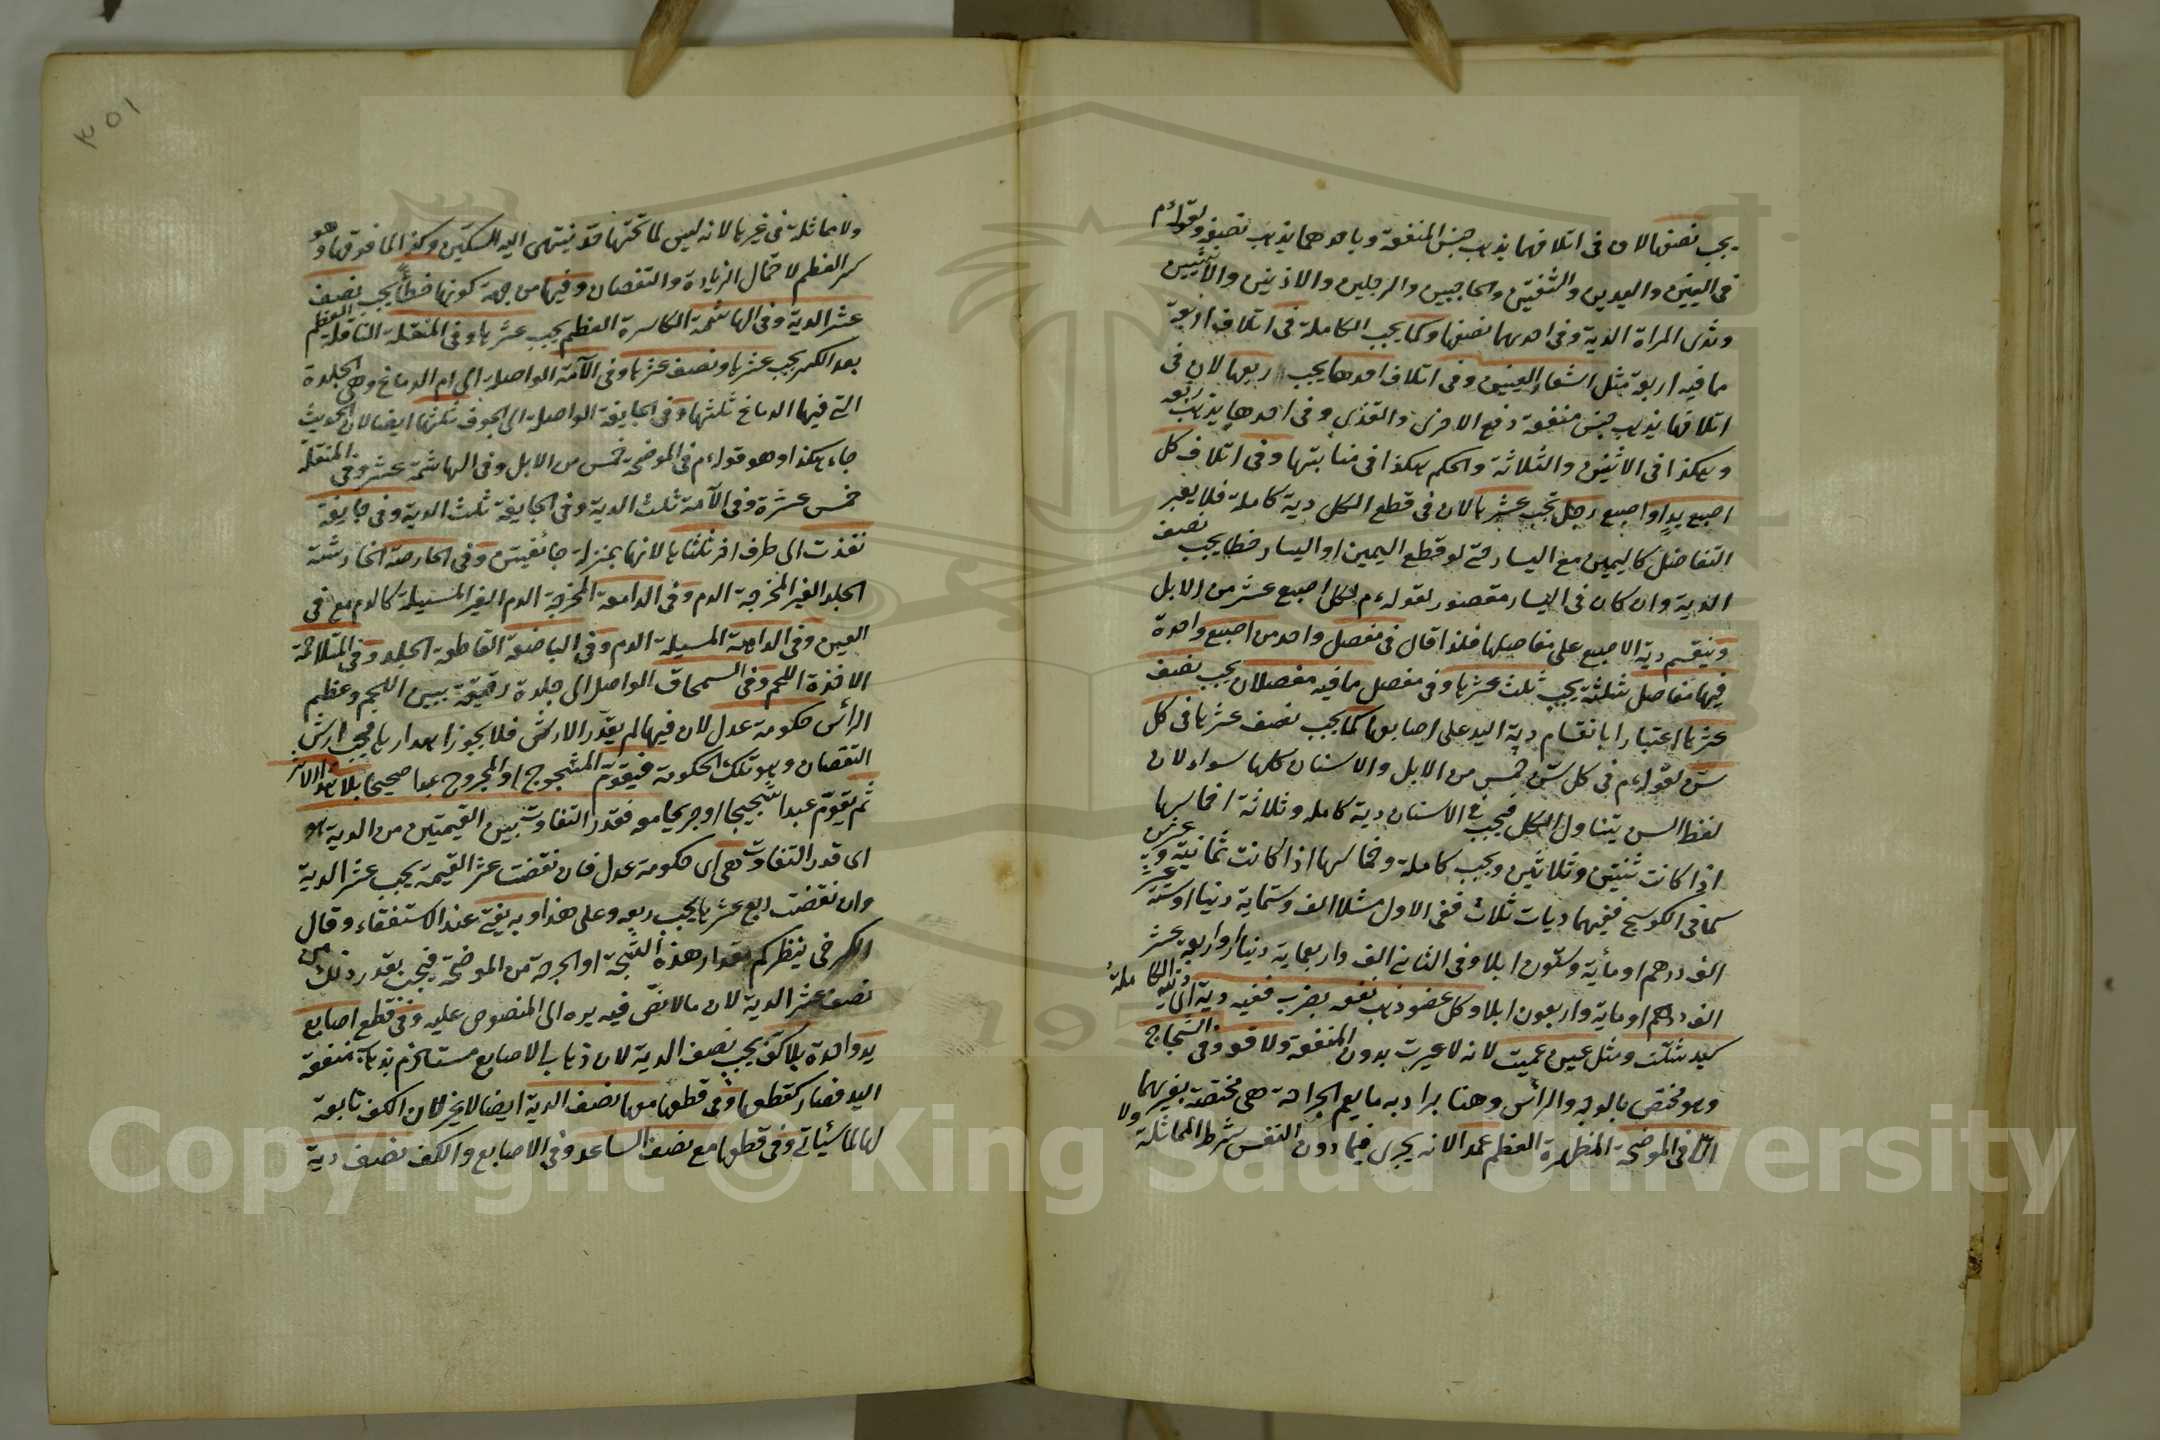 يجب نصفها لان فى اتلافهما يذهب جنس المنفعة وباحدهما يذهب نصفه ولقوله م
فى العينين واليدين والشفتين والحاجبين والرجلين والاذنين والانثيين
وثدى المراة الدية وفى احديهما نصفها وكما يجب الكاملة فى اتلاف اربعة
ما فيه اربعة مثل اشفار العينين وفى اتلاف احدها يجب ربعها لان فى
اتلافها يذهب جنس منفعة دفع الاذى والقذى وفى احدها يذهب ربعه
وهكذا فى الاثنين والثلاثة والحكم هكذا فى منابتها وفى اتلاف كل
اصبع يد او اصبع رجل تجب عشرها لان فى قطع الكل دية كاملة فلا يغير
التفاضل كاليمين مع اليسار حتى لو قطع اليمين او اليسار خطا يجب نصف
الدية وان كان فى اليسار مقصور لقوله م لكل اصبع عشر من الابل
وينقسم دية الاصبع على مفاصلها فلذا قال فى مفصل واحد من اصبع واحدة
فيها مفاصل ثلثة يجب ثلث عشرها وفى مفصل ما فيه مفصلان يجب نصف
عشرها اعتبارا بانقسام دية اليد على اصابعها كما يجب نصف عشرها فى كل
سن لقوله م فى كل سن خمس من الابل والاسنان كلها سواء لان
لفظ السن يتناول الكل فيجب فى الاسنان دية كاملة وثلاثة اخماسها
اذا كانت ثنيتين وثلاثين ويجب كاملة وخماسها اذا كانت ثمانية وعشرين
كما فى الكوسج ففيهما ديات ثلاث ففى الاول مثلا الف وستماية دينار او ستة عشر
الف درهم او مأية وستون ابلا وفى الثانى الف واربعماية دينار او اربعة عشر
الف درهم او ماية واربعون ابلا وكل عضو ذهب نفعه بضرب ففيه دية الكاملة
كيد شلت ومثل عين عميت لانه لا عبرت بدون المنفعة ولا قود فى الشجاج
وهو مختص بالوجه والرأس وهنا يراد به ما يعم الجراحة هى مختصة بغيرهما
الا فى الموضحة المظهرة العظم عمدا لانه يجرى فيما دون النفس شرط المماثلة ولا
٣٥١
ولا مماثلة فى غيرها لانه ليس لما تحتها حد ينتهى اليه السكين وكذا لما فوقها وهو
كسر العظم لاحتمال الزيادة والنقصان وفيها من جهة كونها خطأ يجب نصف
عشر الدية وفى الهاشمة الكاسرة العظم يجب عشرها وفى المنقلة الناقلة العظم
بعد الكسر يجب عشرها ونصف عشرها وفى الآمة الواصلة الى ام الدماغ وهى الجلدة
التى فيها الدماغ ثلثها وفى الجايفة الواصلة الى الجوف ثلثها ايضا لان الحديث
جاء هكذا وهو قوله م فى الموضحة خمس من الابل وفى الهاشمة عشر وفى المنقلة
خمس عشرة وفى الآمة ثلث الدية وفى الجايفة ثلث الدية وفى جايفة
نفذت الى طرف اخر ثلثاها لانها بمنزلة جائفيتن وفى الحارصة الخارشة
الجلد الغير المخرجة الدم وفى الدامعة المخرجة الدم الغير المسيلة كالدمع فى
العين وفى الدامية المسيلة الدم وفى الباضعة القاطعة الجلد وفى المتلاحمة
الاخذة اللحم وفى السمحاق الواصل الى جلدة رقيقة بين اللحم وعظم
الرأس حكومة عدل لان فيها لم يقدر الارش فلا يجوز اهدارها فيجب ارش
النقصان وهو تلك الحكومة فيقوم المشجوج او المجروح عبدا صحيحا بلا هذا الاثر
ثم يقوم عبدا شجيجا او جريحا معه فقدر التفاوت بين القيمتين من الدية هو
اى قدر التفاوت هى اى حكومة عدل فان نقصت عشر القيمة يجب عشر الدية
وان نقصت ربع عشرها يجب ربعه وعلى هذا وبه يفتى عند الاستفتاء وقال
الكرخى ينظر كم مقدار هذه الشجة او الجرحة من الموضحة فيجب بقدر ذلك من
نصف عشر الدية لان ما لا نص فيه يرد الى المنصوص عليه وفى قطع اصابع
يد واحدة بلا كف يجب نصف الدية لان ذهاب الاصابع مستلزم بذهاب منفعة
اليد فصار كقطعها وفى قطعها معها نصف الدية ايضا لا غير لان الكف تابعة
لها لما سيأتى وفى قطعها مع نصف الساعد وفى الاصابع والكف نصف دية